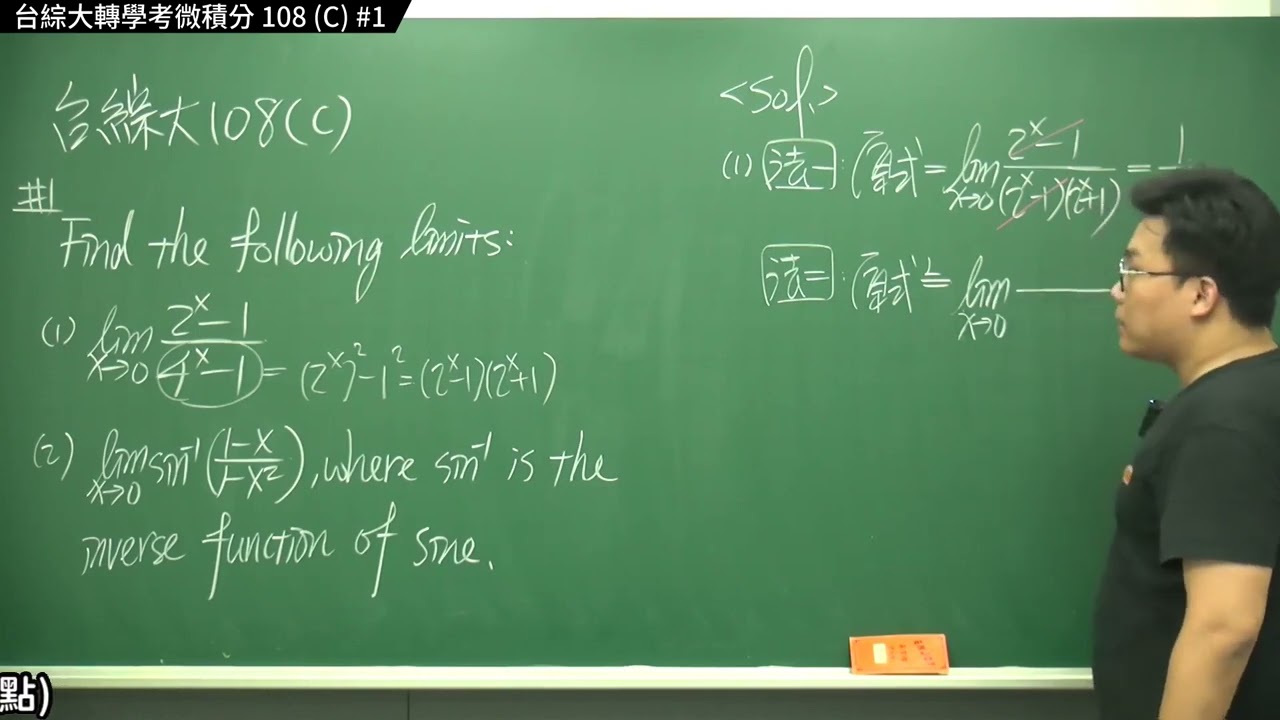 台綜大轉學考微積分 108 (C) #1
台綜大108(C)
#1
Find the following limits:
(1) lim x→0 (2^x-1)/(4^x-1) = (2^x)^2-1^2=(2^x-1)(2^x+1)
(2) lim x→0 sin^-1((1-x)/(1-x^2)), where sin^-1 is the
inverse function of sine.
<sol.>
(1) 法一: 原式 = lim x→0 (2^x-1)/((2^x-1)(2^x+1)) = 1
法二: 原式 L= lim x→0
點)